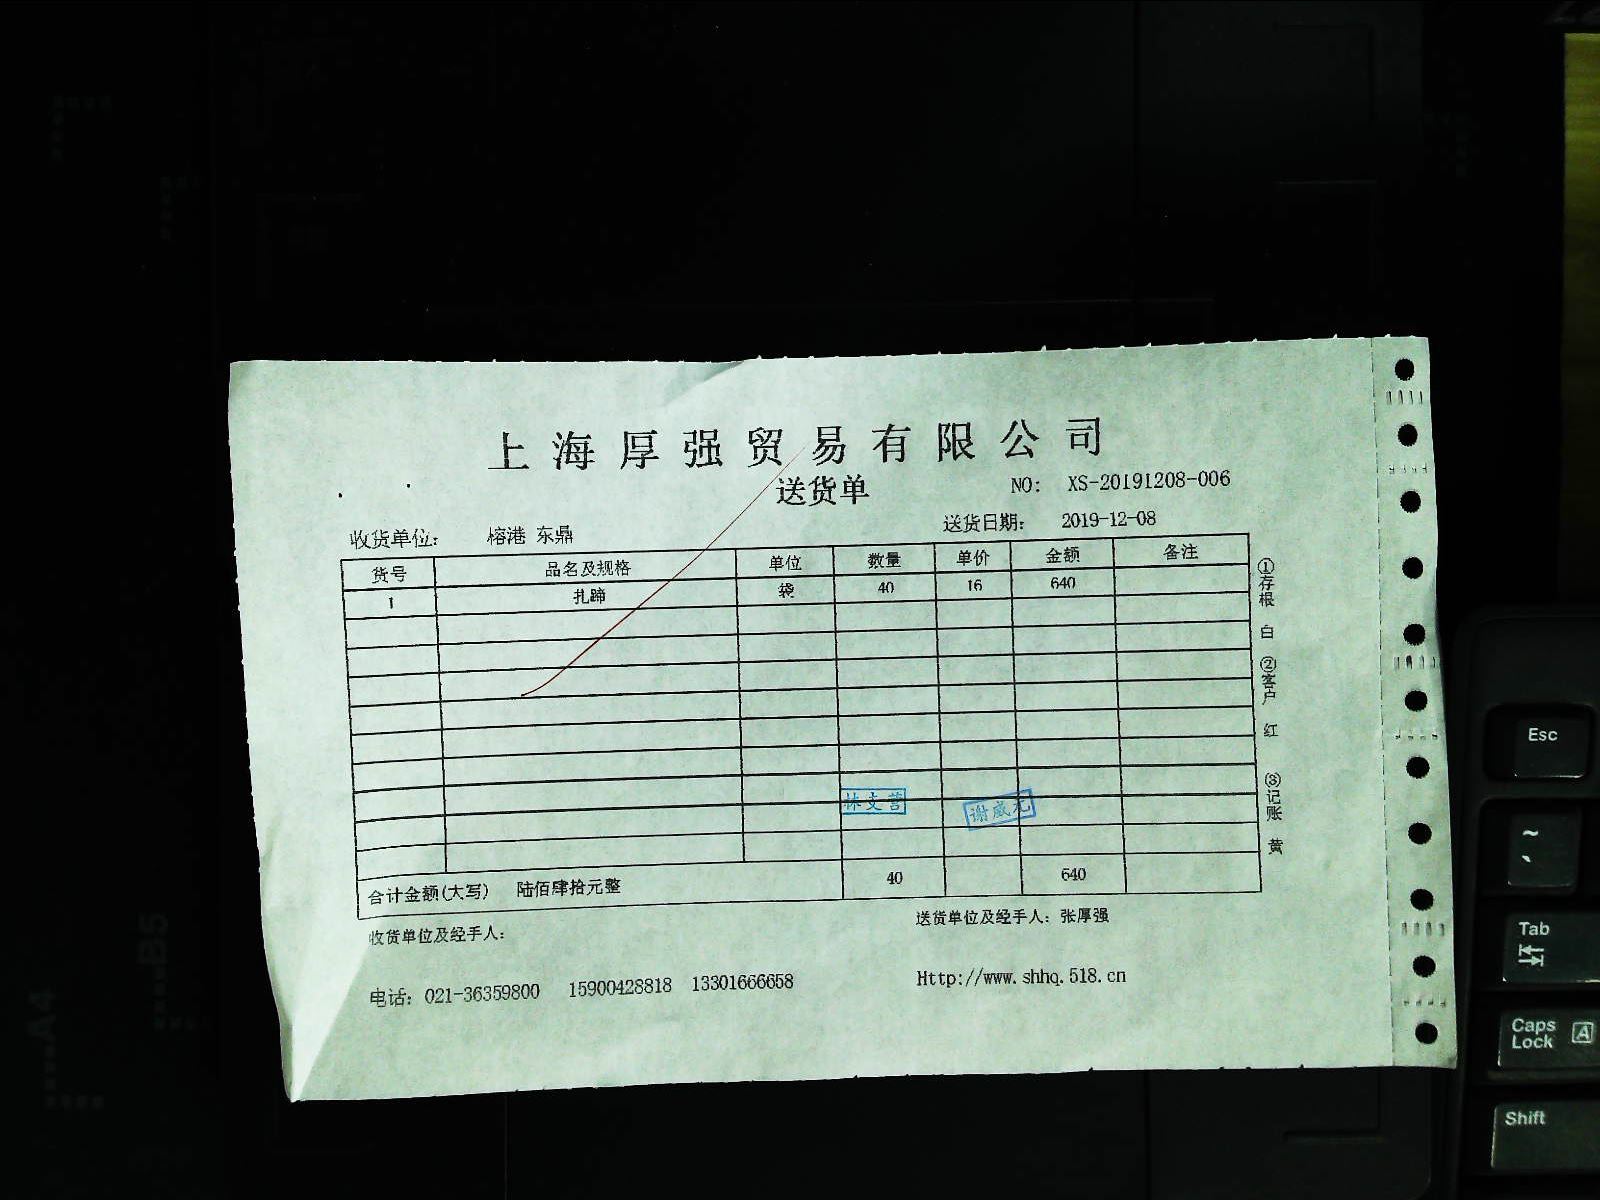 上海厚强贸易有限公司
送货单
NO: XS-20191208-006
收货单位: 榕港 东鼎
送货日期: 2019-12-08
货号 品名及规格 单位 数量 单价 金额 备注
1 扎蹄 袋 40 16 640
谢威
合计金额(大写) 陆佰肆拾元整 40 640
收货单位及经手人:
送货单位及经手人: 张厚强
电话: 021-36359800 15900428818 13301666658
Http://www.shhq.518.cn
①存根 白 ②客户 红 ③记账 黄
Esc
~
Tab
Caps Lock A
Shift
B5
A4